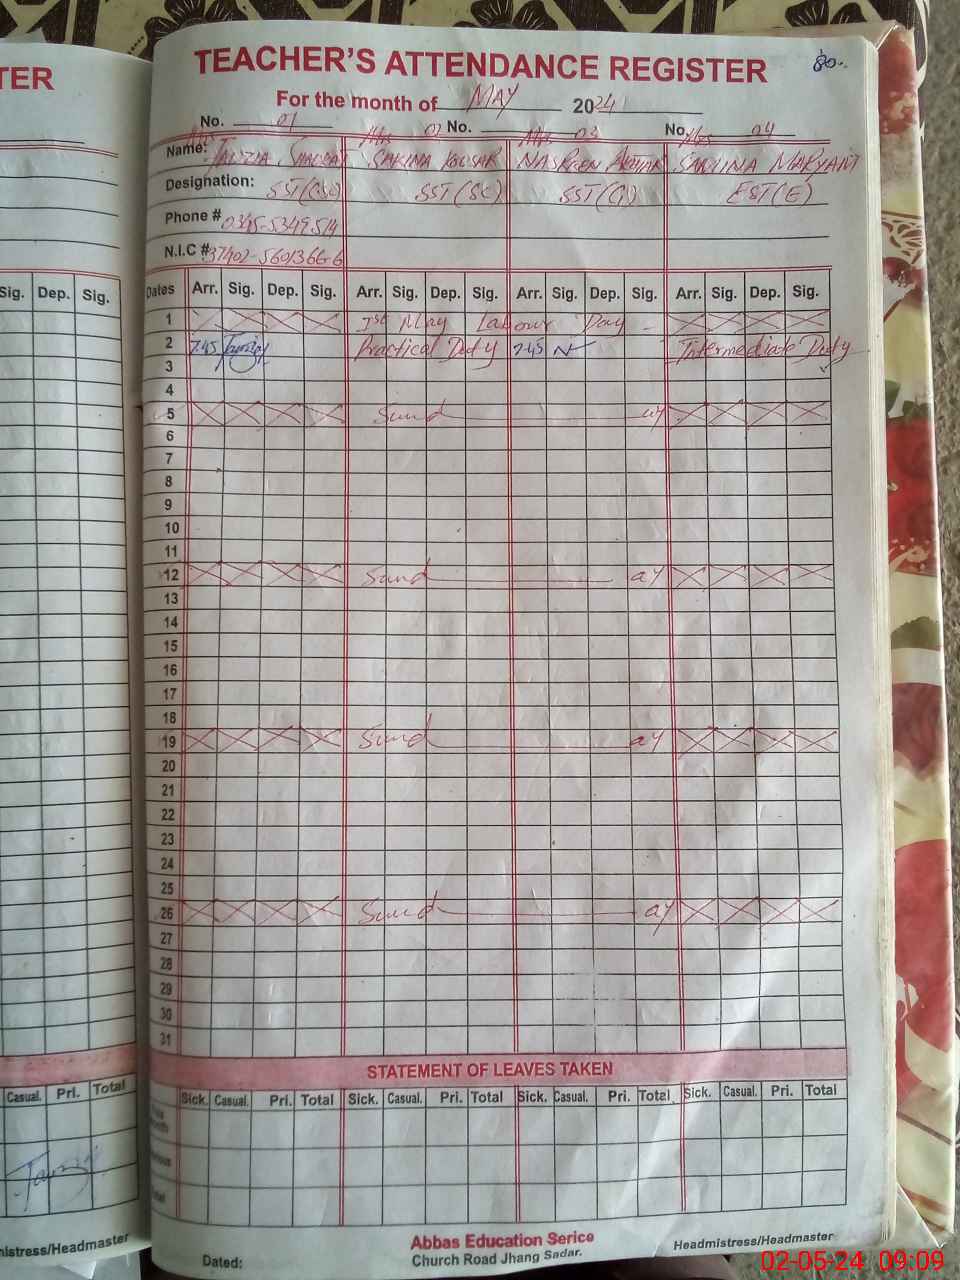 TER
TEACHER'S ATTENDANCE REGISTER
80..
For the month of MAY 2024
No. 01 02 No. 03 No. 04
Name: SAKINA KOUSAR
Designation: SST(SC) EST(E)
Phone # 0345-5349514
N.I.C # 37402-5601366-6
Sig. Dep. Sig.
Dates Arr. Sig. Dep. Sig. Arr. Sig. Dep. Sig. Arr. Sig. Dep. Sig. Arr. Sig. Dep. Sig.
1 1st May Labour Day
2 7.45 Practical Duty 7.45 Intermediate Duty
3
4
5 Sund ay
6
7
8
9
10
11
12 Sund ay
13
14
15
16
17
18
19 Sund ay
20
21
22
23
24
25
26 Sund ay
27
28
29
30
31
STATEMENT OF LEAVES TAKEN
Casual. Pri. Total
Sick. Casual. Pri. Total Sick. Casual. Pri. Total Sick. Casual. Pri. Total Sick. Casual. Pri. Total
mistress/Headmaster
Dated:
Abbas Education Serice
Church Road Jhang Sadar.
Headmistress/Headmaster
02-05-24 09:09